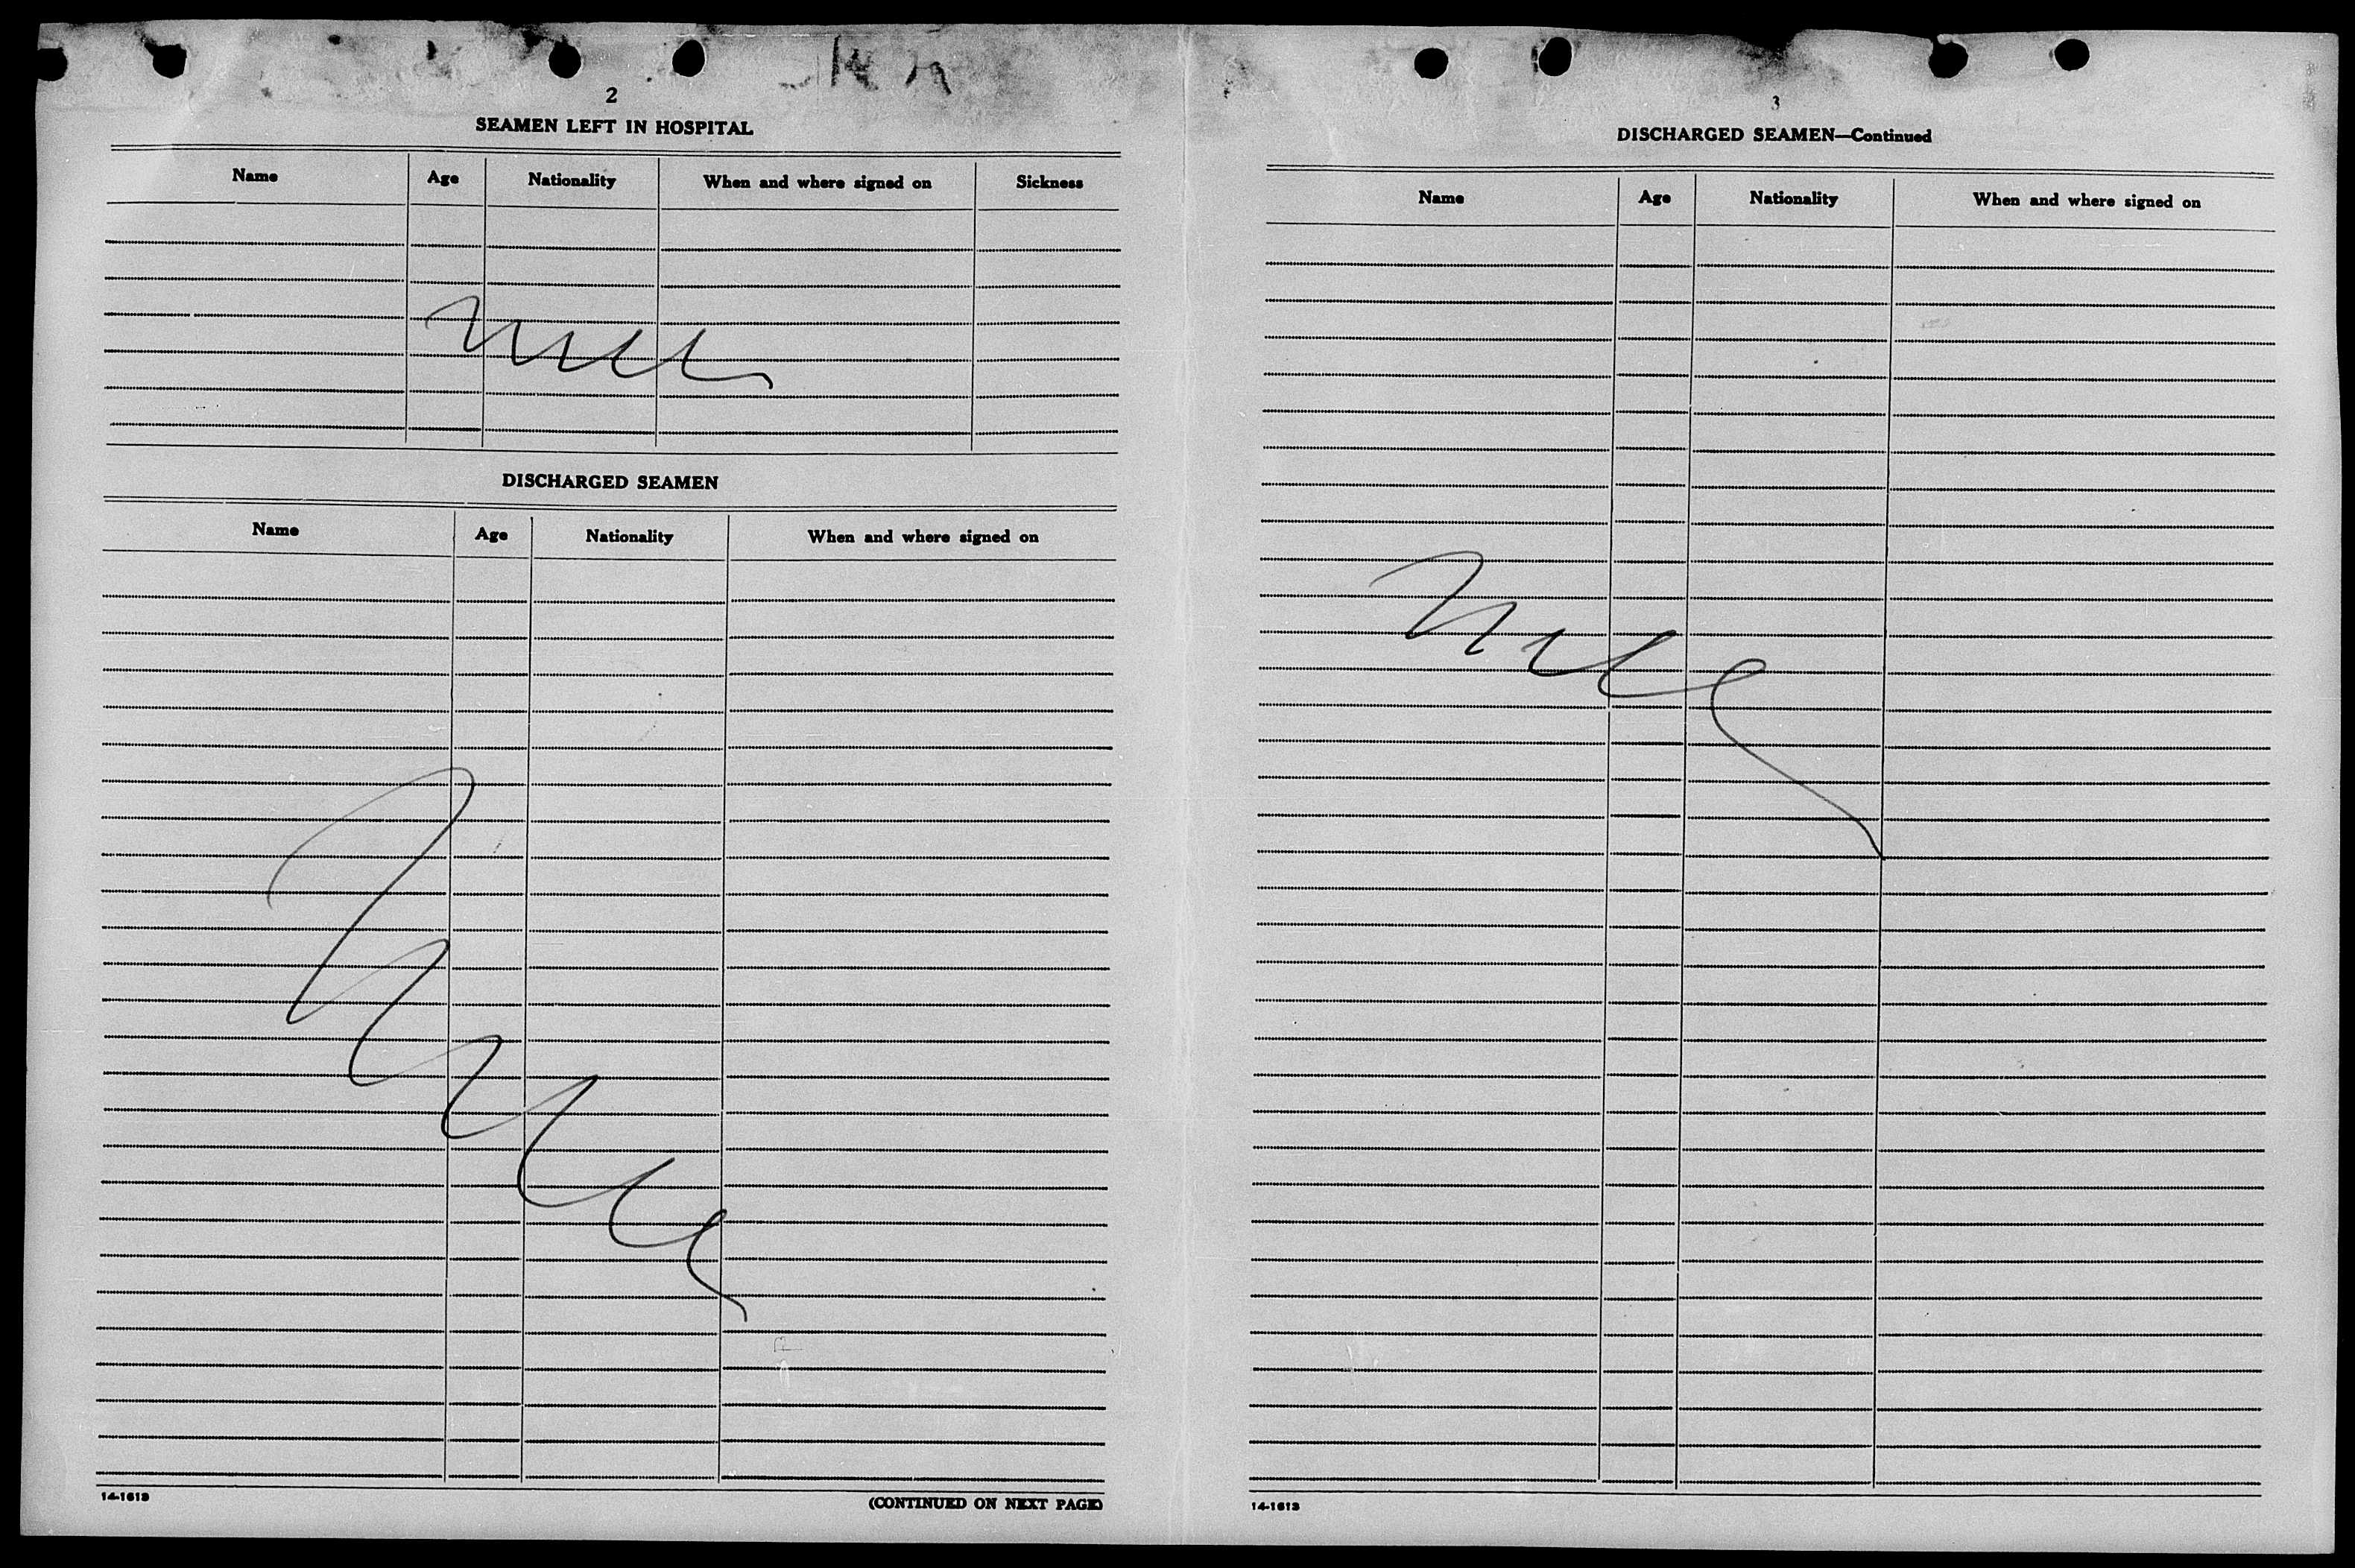 2
SEAMEN LEFT IN HOSPITAL
Name Age Nationality When and where signed on Sickness
DISCHARGED SEAMEN
Name Age Nationality When and where signed on
14-1613
(CONTINUED ON NEXT PAGE)
3
DISCHARGED SEAMEN—Continued
Name Age Nationality When and where signed on
14-1613